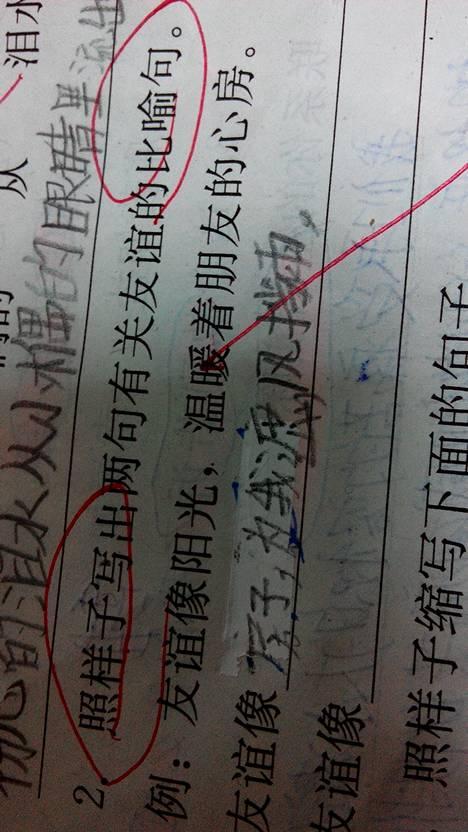 从 泪水
的泪水从小木偶的眼睛里流出
2. 照样子写出两句有关友谊的比喻句。
例：友谊像阳光，温暖着朋友的心房。
友谊像 子，为我遮风挡雨，
友谊像
照样子缩写下面的句子